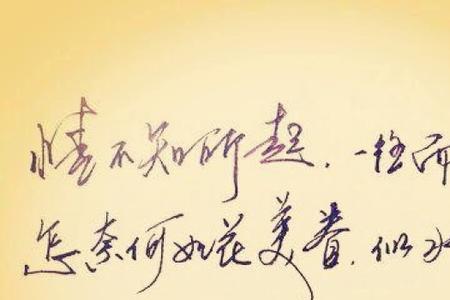 情不知所起，一往而
怎奈何如花美眷，似水